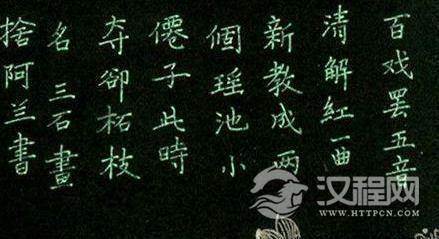 百戏罢五音
清解紅一曲
新教成两
個瑶池小
僊子此時
夺卻柘枝
名 三石畫
捨阿兰書
汉程网
WWW.HTTPCN.COM